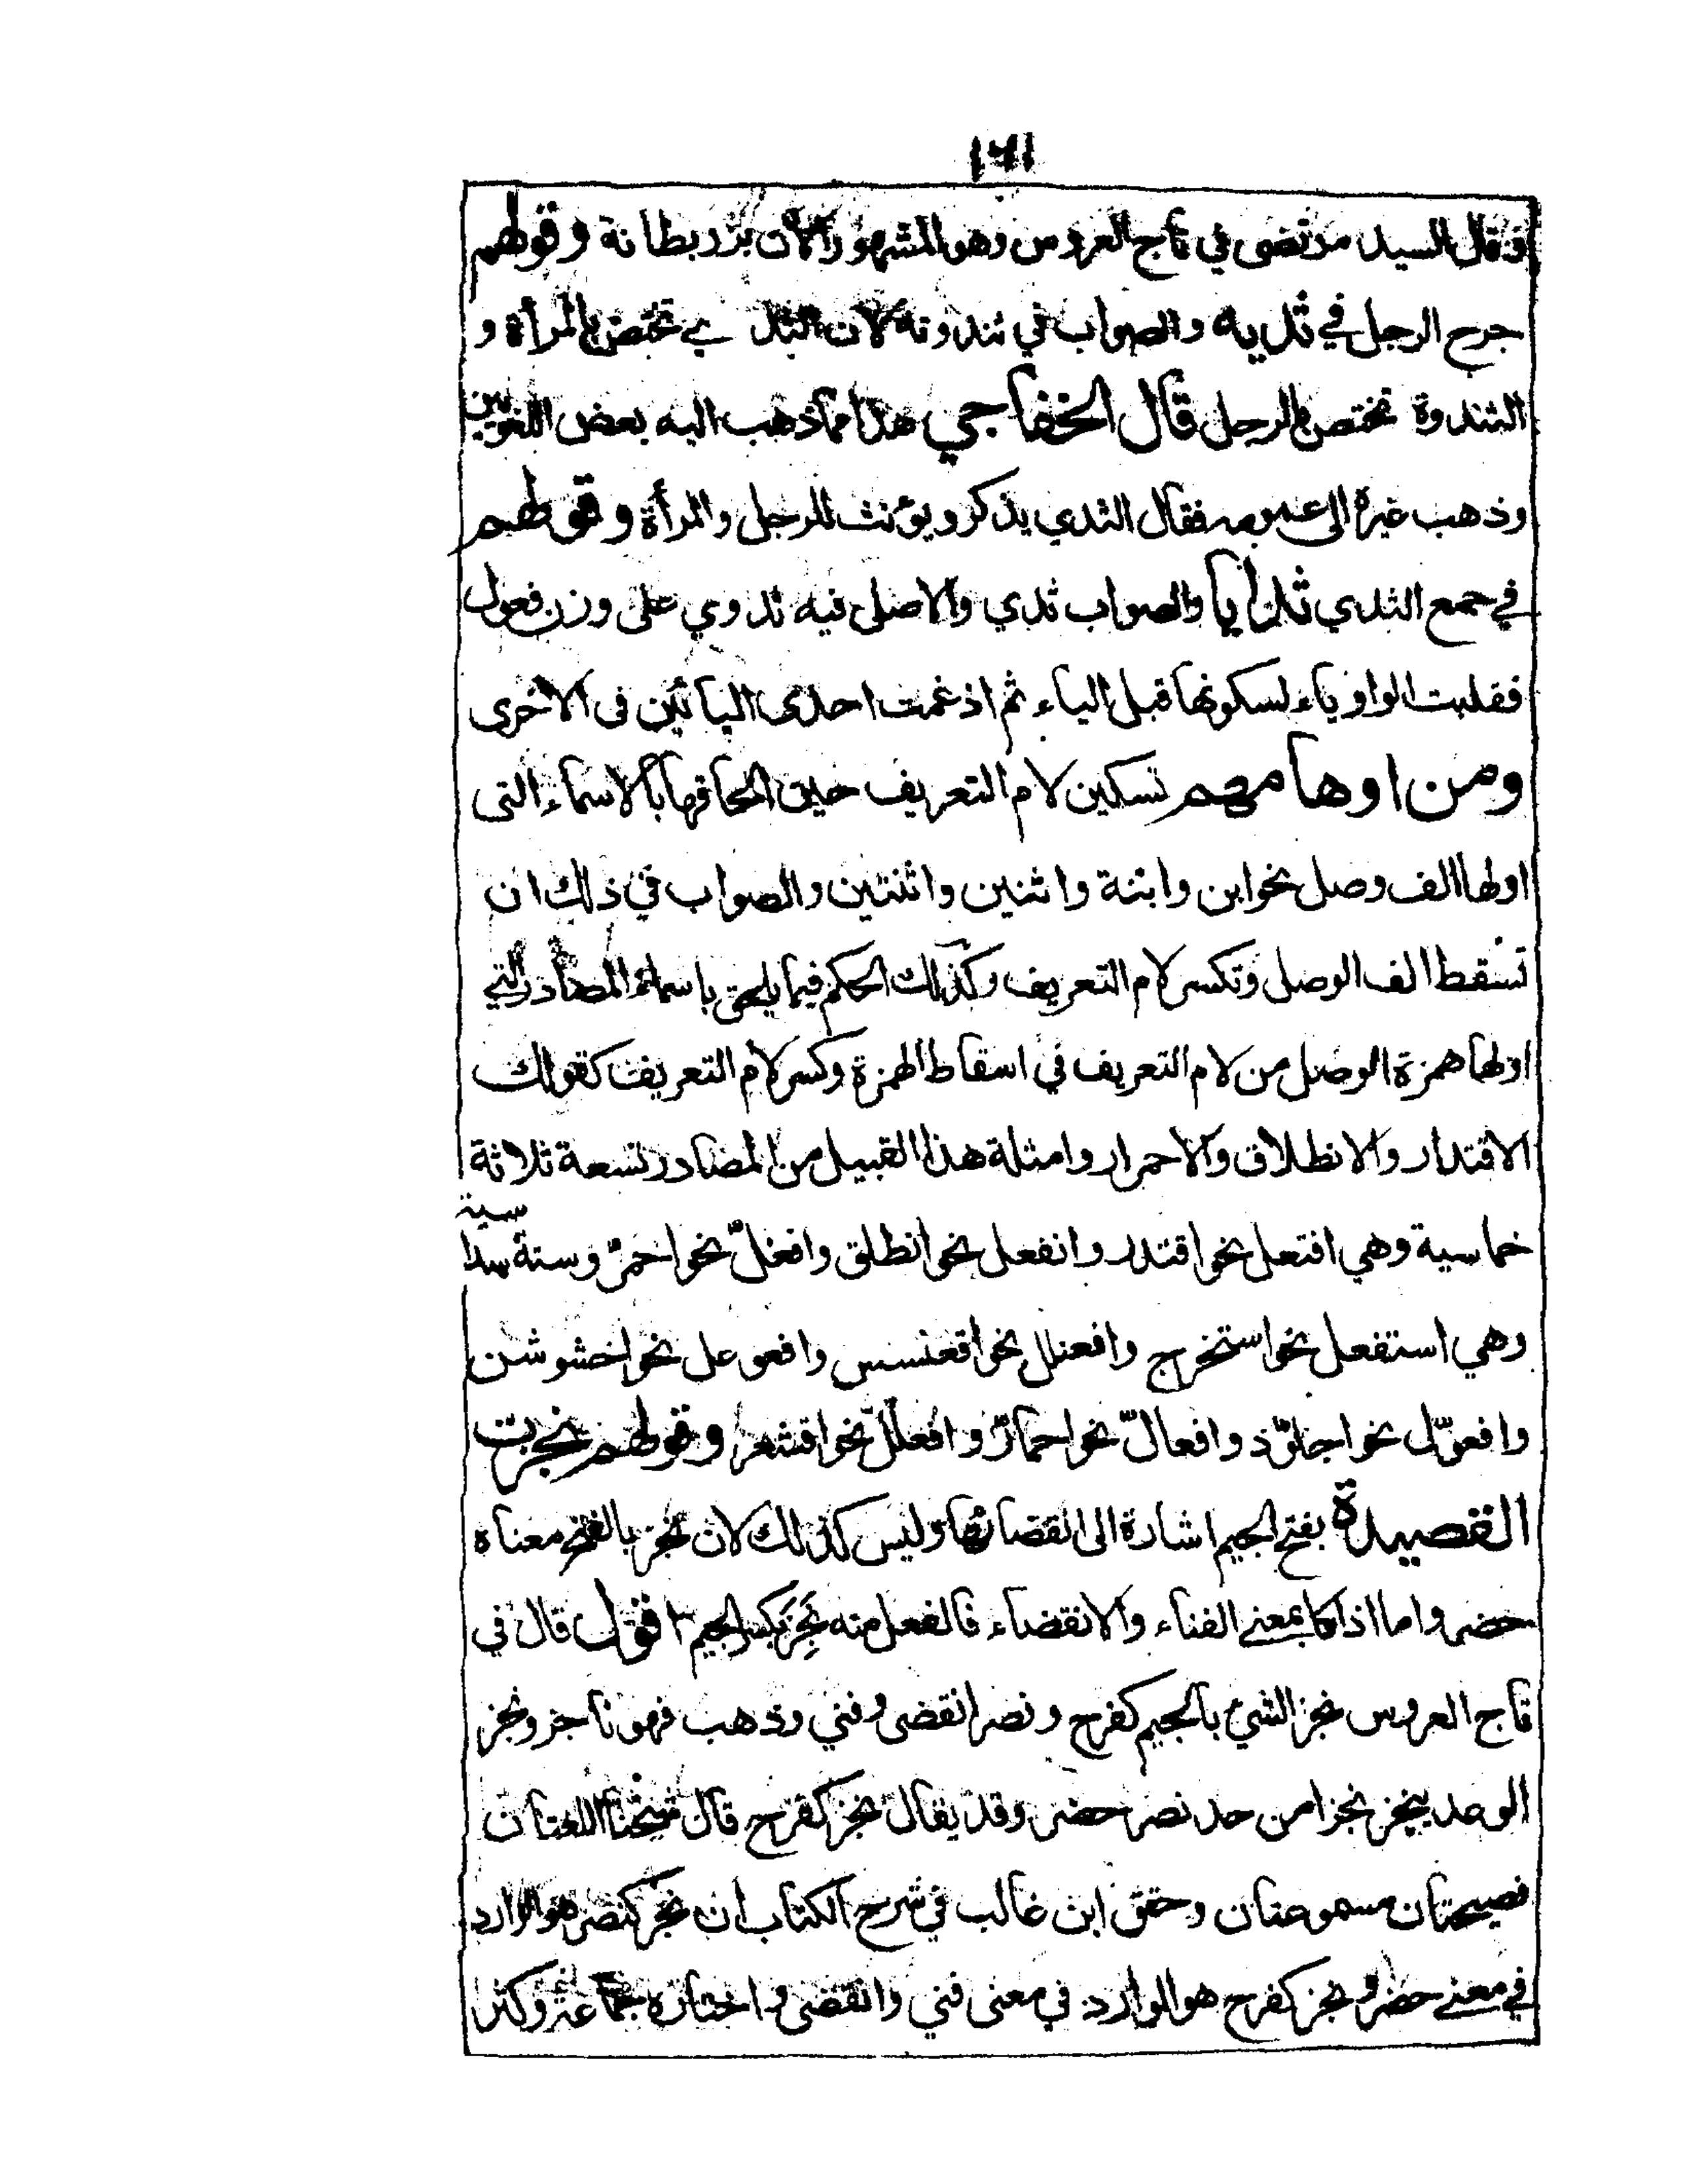 ١٦١
فقال السيد مرتضى في تاج العروس وهو المشهور الآن ببزربطانة وقولهم
جرح الرجل في ثديه والصواب في ثندوته لان الثد ي تختص بالمرأة و
الثندوة تختص بالرجل قال الخفاجي هذا مما ذهب اليه بعض اللغويين
وذهب غيره الى عمومه فقال الثدي يذكر ويؤنث للرجل والمرأة وقولهم
في جمع الثدي ثدايا والصواب ثدي والاصل فيه ثدوي على وزن فعول
فقلبت الواو ياء لسكونها قبل الياء ثم ادغمت احدى اليائين فى الاخرى
ومن اوهامهم تسكين لام التعريف حين الحاقها بالاسماء التى
اولها الف وصل نحو ابن وابنة واثنين واثنتين والصواب في ذلك ان
تسقط الف الوصل وتكسر لام التعريف وكذلك الحكم فيما يلحق باسماء المصادر التي
اولها همزة الوصل من لام التعريف في اسقاط الهمزة وكسر لام التعريف كقولك
الاقتدار والانطلاق والاحمرار وامثلة هذا القبيل من المصادر تسعة ثلاثة
خماسية وهي افتعل نحو اقتدر وانفعل نحو انطلق وافعلّ نحو احمرّ وستة سدا سية
وهي استفعل نحو استخرج وافعنلل نحو اقعنسس وافعوعل نحو اخشوشن
وافعوّل نحو اجلوّذ وافعالّ نحو احمارّ وافعللّ نحو اقشعر وقولهم نجزت
القصيدة بفتح الجيم اشارة الى انقضائها وليس كذلك لان نجز بالفتح معناه
حضر واما اذا كا بمعنى الفناء والانقضاء فالفعل منه نَجِزَ بكسر الجيم اقول قال في
تاج العروس نجز الشئ بالجيم كفرح ونصر انقضى وفني وذهب فهو ناجز ونجز
الوعد ينجز نجزا من حد نصر حضر وقد يقال نجز كفرح قال شيخنا اللغتان
فصيحتان مسموعتان وحقق ابن غالب في شرح الكتاب ان نجز كنصر هو الوارد
في معنى حضر ونجز كفرح هو الوارد في معنى فني وانقضى واختاره جماعة وكثر